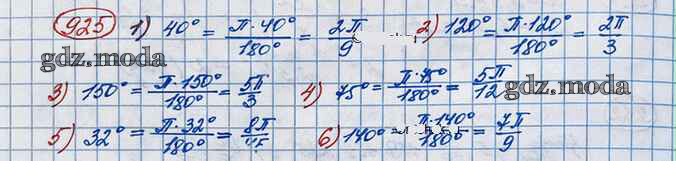 925 1) 40° = π·40°/180° = 2π/9 2) 120° = π·120°/180° = 2π/3
gdz.moda
3) 150° = π·150°/180° = 5π/3 4) 75° = π·75°/180° = 5π/12
gdz.moda
5) 32° = π·32°/180° = 8π/45 6) 140° = π·140°/180° = 7π/9